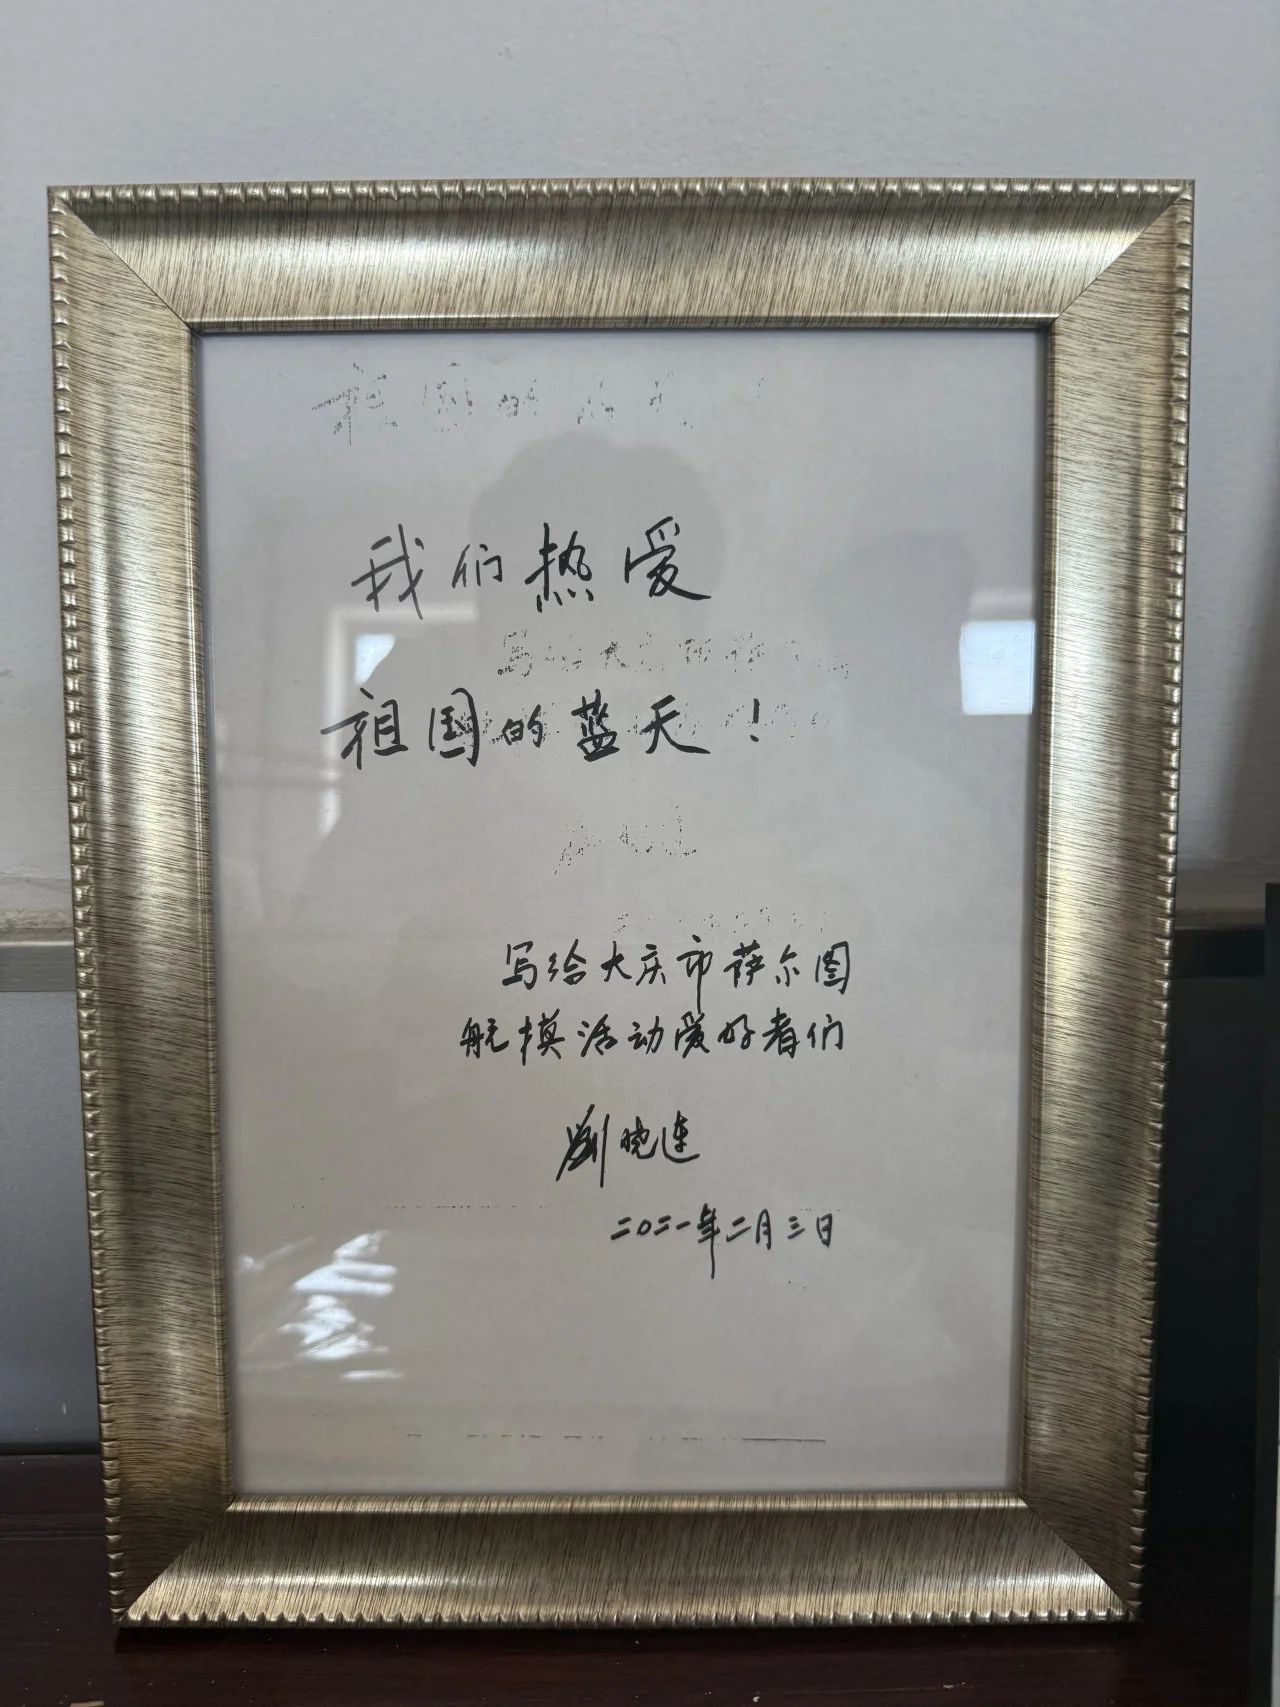 我们热爱
祖国的蓝天！
写给大庆市萨尔图
航模活动爱好者们
刘晓连
二〇二一年二月三日